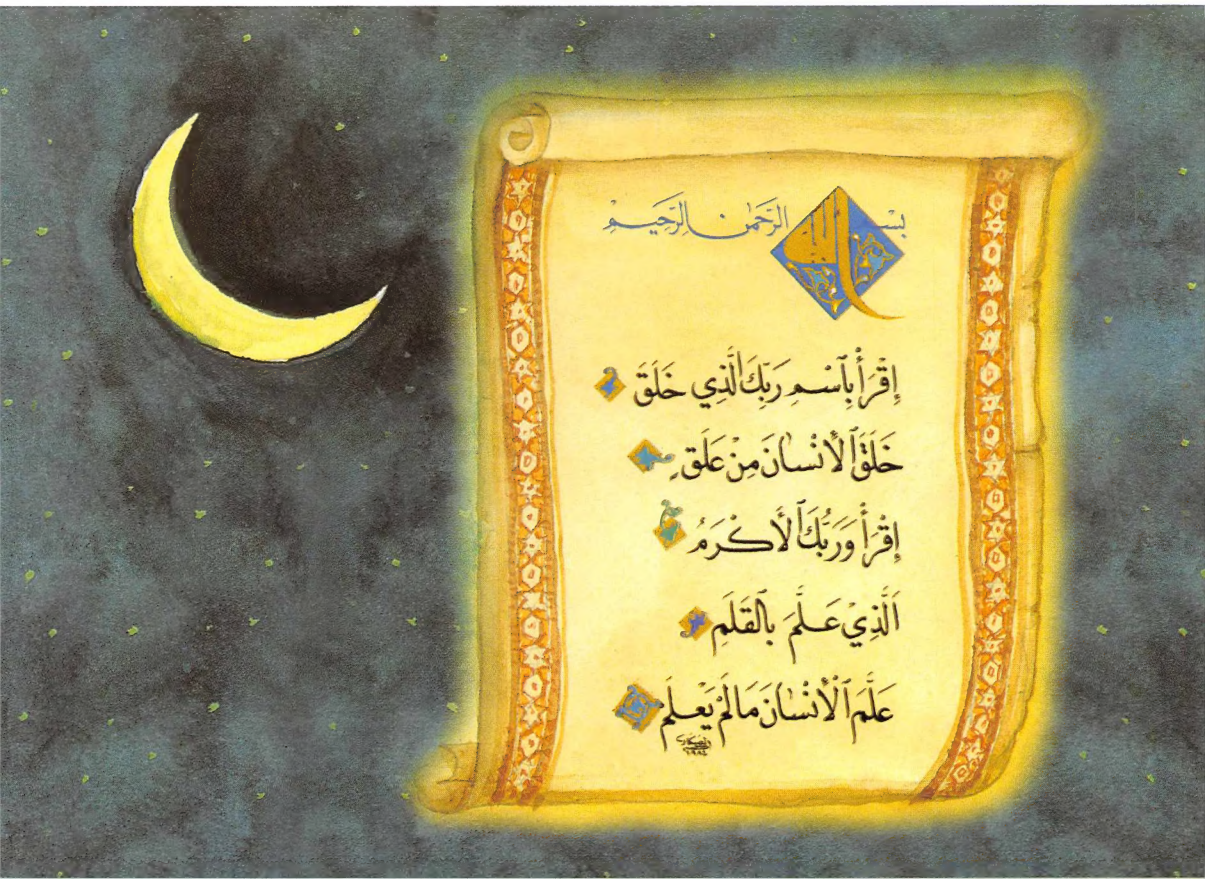 بِسْمِ اللّٰهِ الرَّحْمٰنِ الرَّحِيمِ
اِقْرَأْ بِٱسْمِ رَبِّكَ الَّذِي خَلَقَ
خَلَقَ ٱلْأَنْسٰانَ مِنْ عَلَقٍ
اِقْرَأْ وَرَبُّكَ ٱلْأَكْرَمُ
اَلَّذِيْ عَلَّمَ بِالْقَلَمِ
عَلَّمَ ٱلْأِنْسٰانَ مَا لَمْ يَعْلَمْ